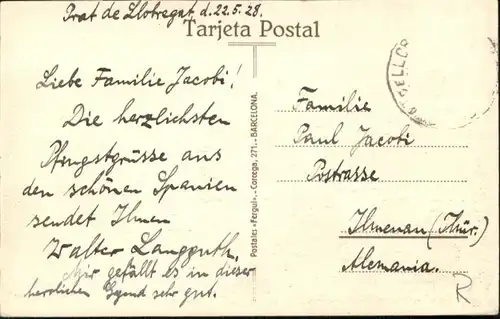 Prat de Llobregat, d. 22.5.28.
Tarjeta Postal
Liebe Familie Jacobi!
Die herzlichsten
Pfingstgrüsse aus
den schönen Spanien
sendet Ihnen
Walter Langguth.
Mir gefällt es in dieser
herrlichen Gegend sehr gut.
Postales «Fergui».-Corcega, 271.-BARCELONA.
Familie
Paul Jacobi
Poststrasse
Ilmenau (Thür.)
Alemania.
R